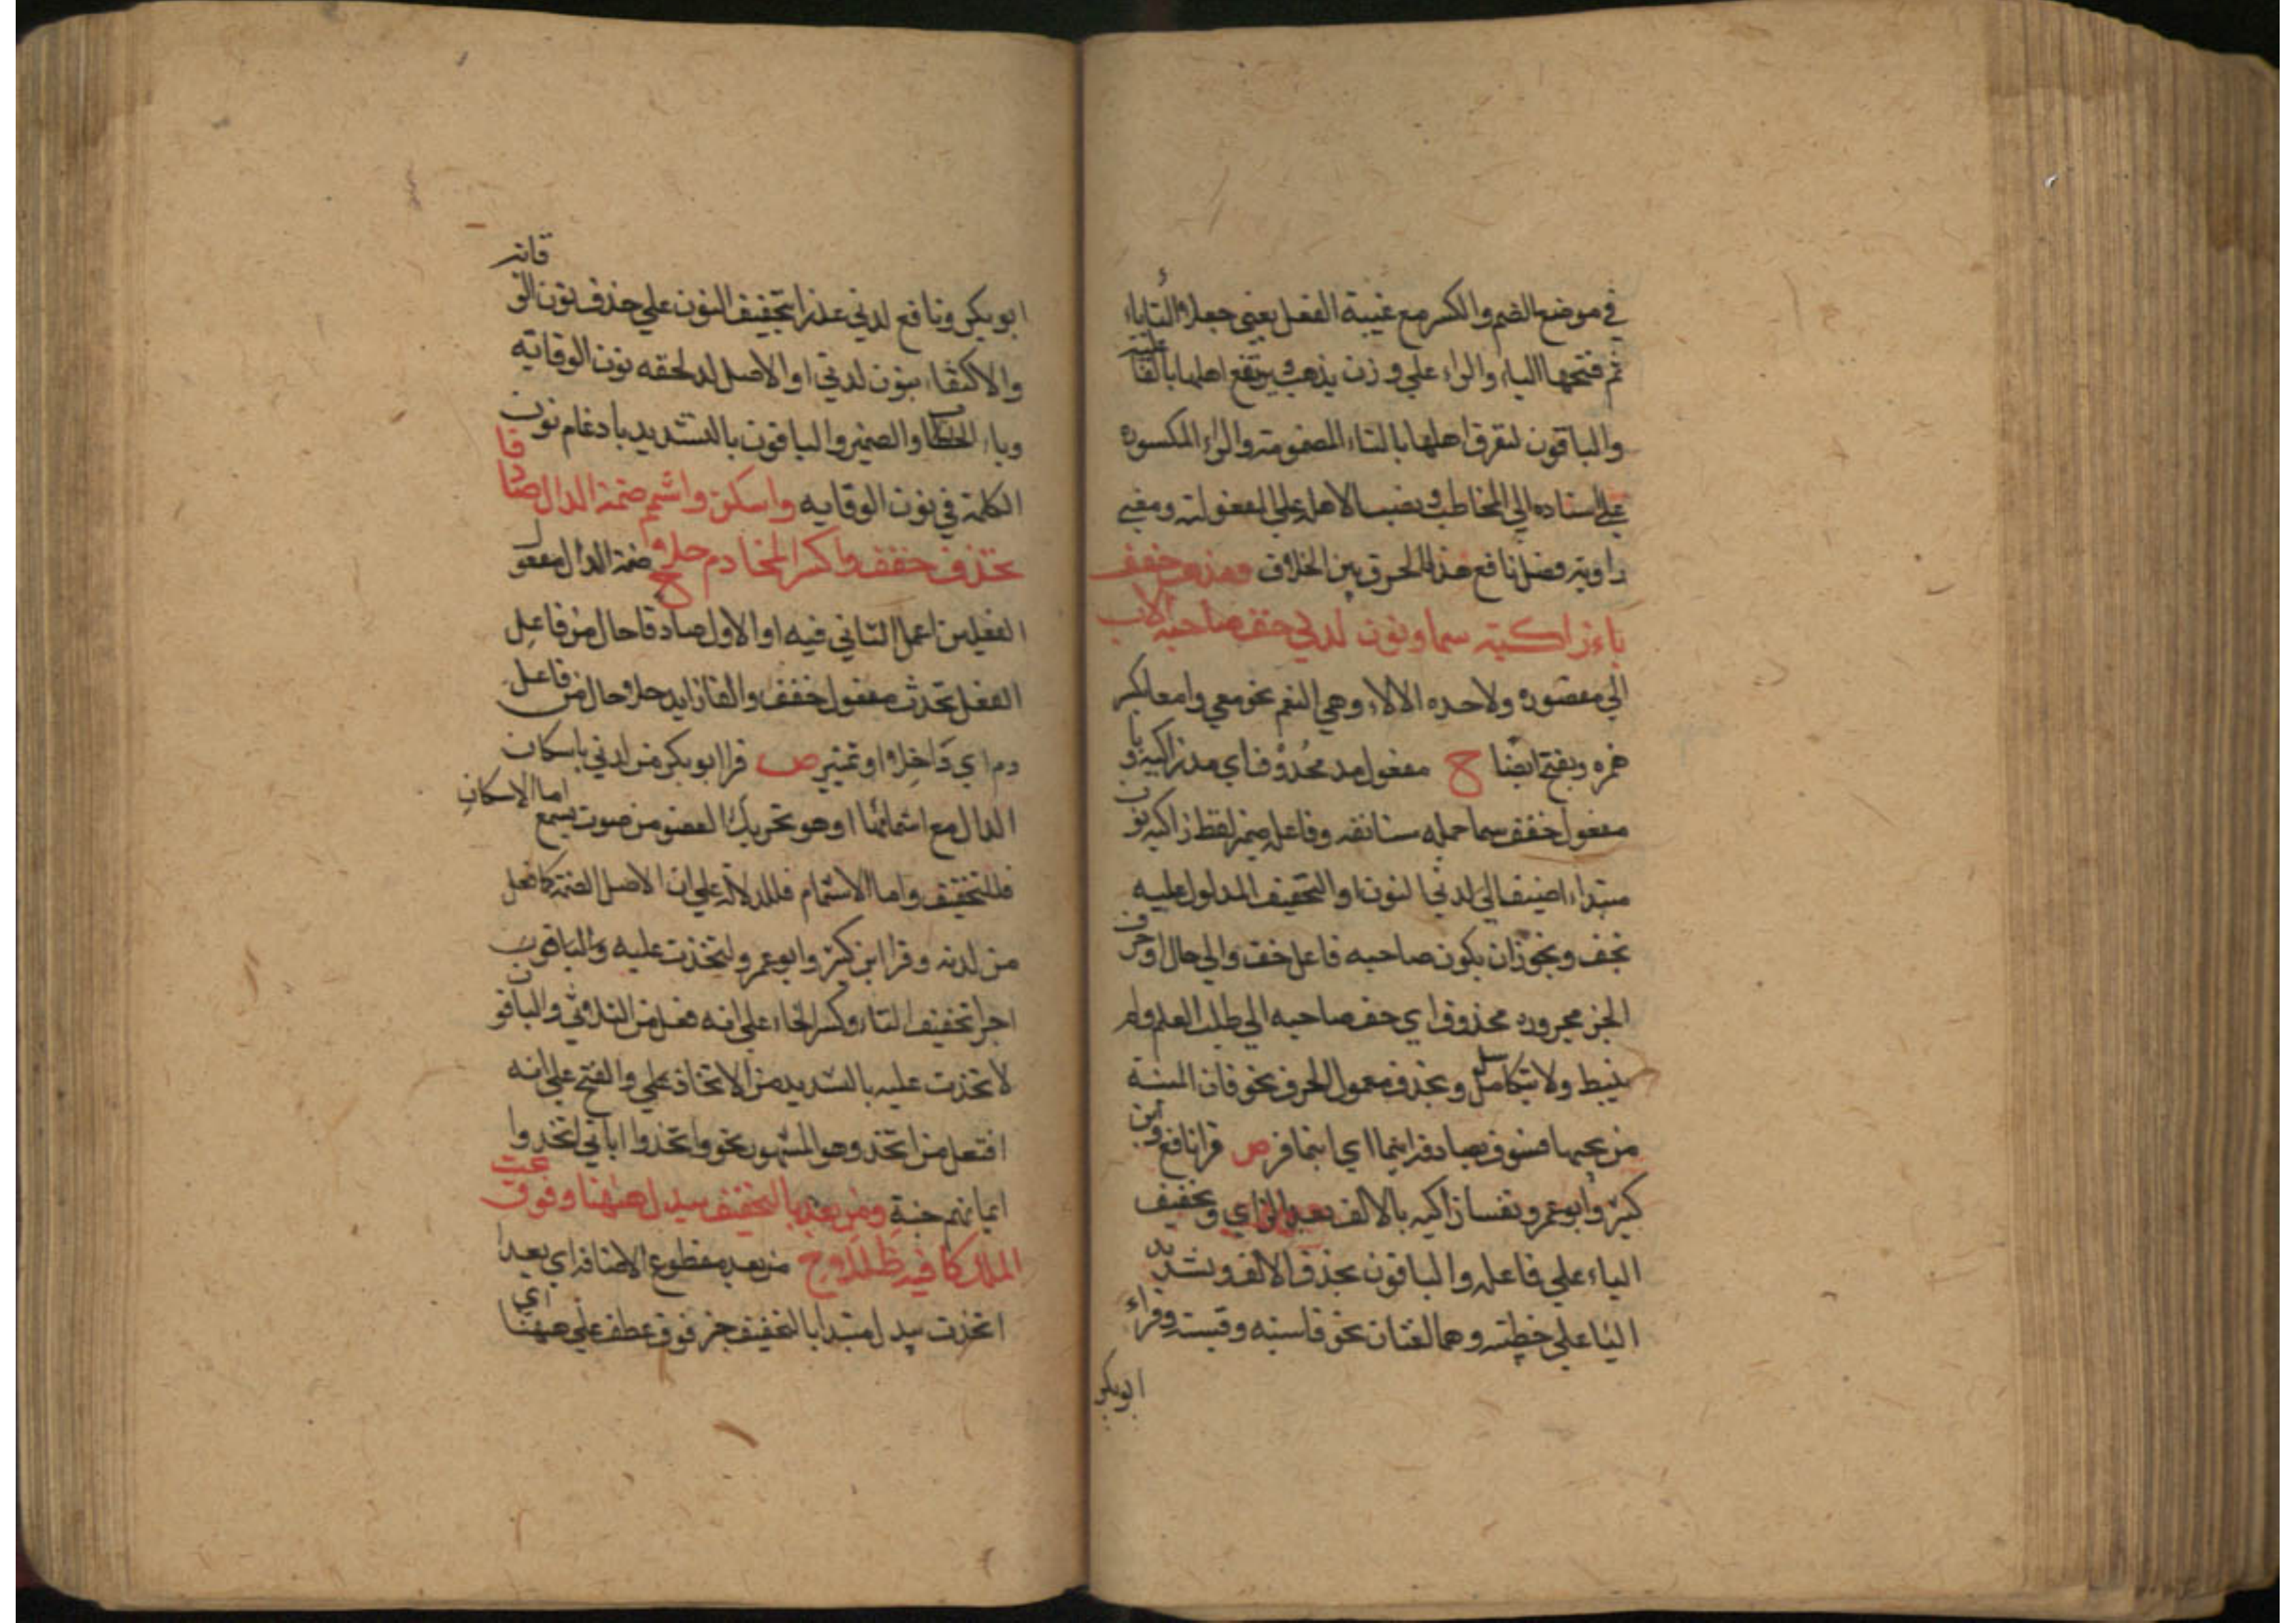 في موضع الضم والكسر مع غيبة الفعل يعني جعلوا التاء ياء
ثم فتحها الياء والراء علي وزن يذهب يرتفع اهلها بالفاعلية
والباقون لتغرق اهلها بالتاء المضمومة والراء المكسورة
علي اسناده الي المخاطب ونصب الاهل علي المفعولية ومعني
راويه فضل نافع هذا الحرف بين الخلاف ومد وخفف
ياء زاكية سما ونون لدني خف صاحبه الي
الي مقصورة واحده الالاء وهي النعم نحو معي وامعا بكسر
همزه وبفتح ايضا ح مفعول مد محذوف اي مد زاكية ويا
مفعول خفف سما جمله مستانفه وفاعله ضمير لفظ زاكيه نون
مبتداء اضيف الي لدني النون او التخفيف المدلول عليه
بخف ويجوز ان يكون صاحبه فاعل خف والي حال او حرف
الجر مجروره محذوف اي خف صاحبه الي طلب العلم ولم
يثبط ولا يتكاسل ويحذف معمول الحرف نحو فان المنية
من يخشها فسوف يصادفه اينما اي اينما فر ص قرا نافع وابن
كثير وابو عمرو نفسا زاكيه بالالف بعد الزاي وتخفيف
الياء علي فاعله والباقون بحذف الالف وتشديد
اليا علي خطية وهما لغتان نحو قاسيه وقسية وقراء
ابو بكر
ابو بكر ونافع لدني عذرا بتخفيف النون علي حذف نون الوقاية
والاكتفاء بنون لدني او الاصل لد لحقه نون الوقاية
وياء الضمير والباقون بالتشديد بادغام نون
الكلمة في نون الوقايه واسكن واشمم ضمة الدال صادقا
تخذف خفف واكسر الخا دم حلا ح ضمة الدال مفعول
الفعلين اعمل الثاني فيه او الاول صادقا حال من فاعل
الفعل تخذت مفعول خفف والفا زايد حلا حال من فاعل
دم اي ذا حلا او تمييز ص قرا ابو بكر من لدني باسكان
الدال مع اشمامها وهو تحريك العضو من صوت يسمع اما الاسكان
فللتخفيف واما الاشمام فللدلالة علي ان الاصل الضمة كما فعل
من لدنه وقرا ابن كثير وابو عمرو لتخذت عليه والباقون
اجرا تخفيف التاء وكسر الخاء علي انه فعل من الثلاثي والباقون
لاتخذت عليه بالتشديد من الاتخاذ علي والفتح علي انه
افتعل من اتخذ وهو المشهور نحو واتخذوا اياتي اتخذوا
ايمانهم جنة ومن بعد بالتخفيف يبدل ههنا وفوق وتحت
الملك كافيه ظللا ح من بعد مقطوع الاضافه اي بعد
اتخذت يبدل مبتدا بالتخفيف خبر فوق عطف علي ههنا اي